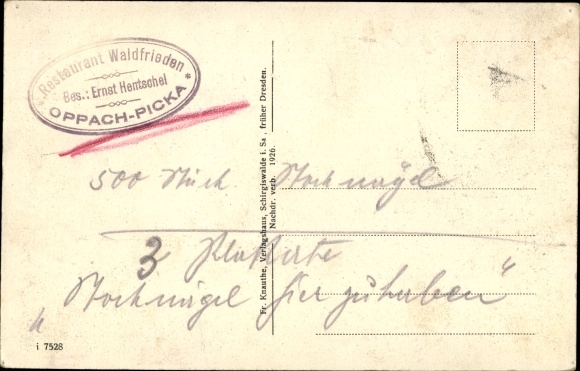 * Restaurant Waldfrieden *
Bes.: Ernst Hentschel
OPPACH-PICKA
Fr. Knauthe, Verlagshaus, Schirgiswalde i. Sa., früher Dresden.
Nachdr. verb. 1926.
500 Stück Stocknägel
3 Plakate
"Stocknägel hier zu haben"
i 7528